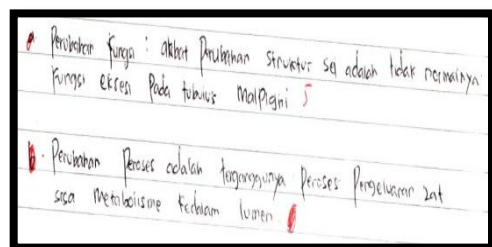 a Perubahan Fungsi : akibat Perubahan struktur sel adalah tidak normalnya
Fungsi eksresi Pada tubulus Malpigni 5
b. Perubahan Peroses adalah terganggunya Peroses Pengeluaran zat
sisa Metabolisme kedalam lumen